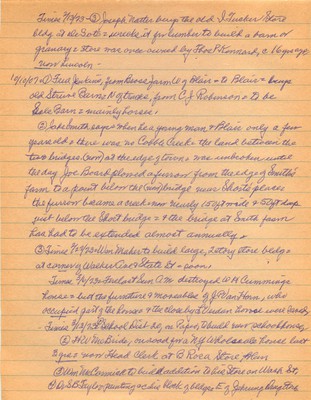 Times 7/13/93 - ② Joseph Natter buys the old J. Tucker Store
bldg at De Soto = wrecks it for lumber to build a barn or
granary = store was once owned by Thos P Kennard, c. 16 years ago
now Lincoln -
from Rose farm W of Blair = to Blair = buys
old Struck Barn N of tracks, from C. J. Robinson = to be
Sale Barn = mainly horses.
② Jake Smith says = when he a young man = Blair only a few
years old = there was no Cobb Creek = the land between the
two bridges (now) at the edge of town = was unbroken until
the day Joe Board plowed a furrow from the edge of Smith's
farm to a point below the (now) bridge near Short's place =
the furrow became a creek = now nearly 150 ft wide = 50 ft drop
just below the Short bridge = & the bridge at Smith farm
has had to be extended almost annually.
③ Times to build large, 2 story store bldg =
at corner of Walker Ave & State St = soon.
destroyed W H Cummings
house = but the furniture & moveables of J P Van Horn, who
occupied part of the house = & the close by Warden house were saved
School Dist to build new school house,
② H. C. McBride, on road for a NY Wholesale house last
2 yrs = now Head Clerk at B Roca Store,
③ Wm McCormick to build addition to his Store on Wash St,
④ Dr St. Taylor painting = his block of bldgs E of